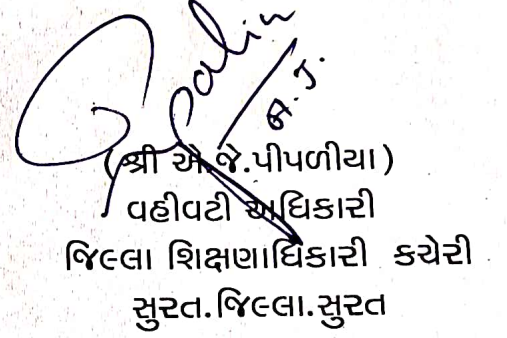 (શ્રી એ.જે.પીપળીયા)
વહીવટી અધિકારી
જિલ્લા શિક્ષણાધિકારી કચેરી
સુરત.જિલ્લા.સુરત